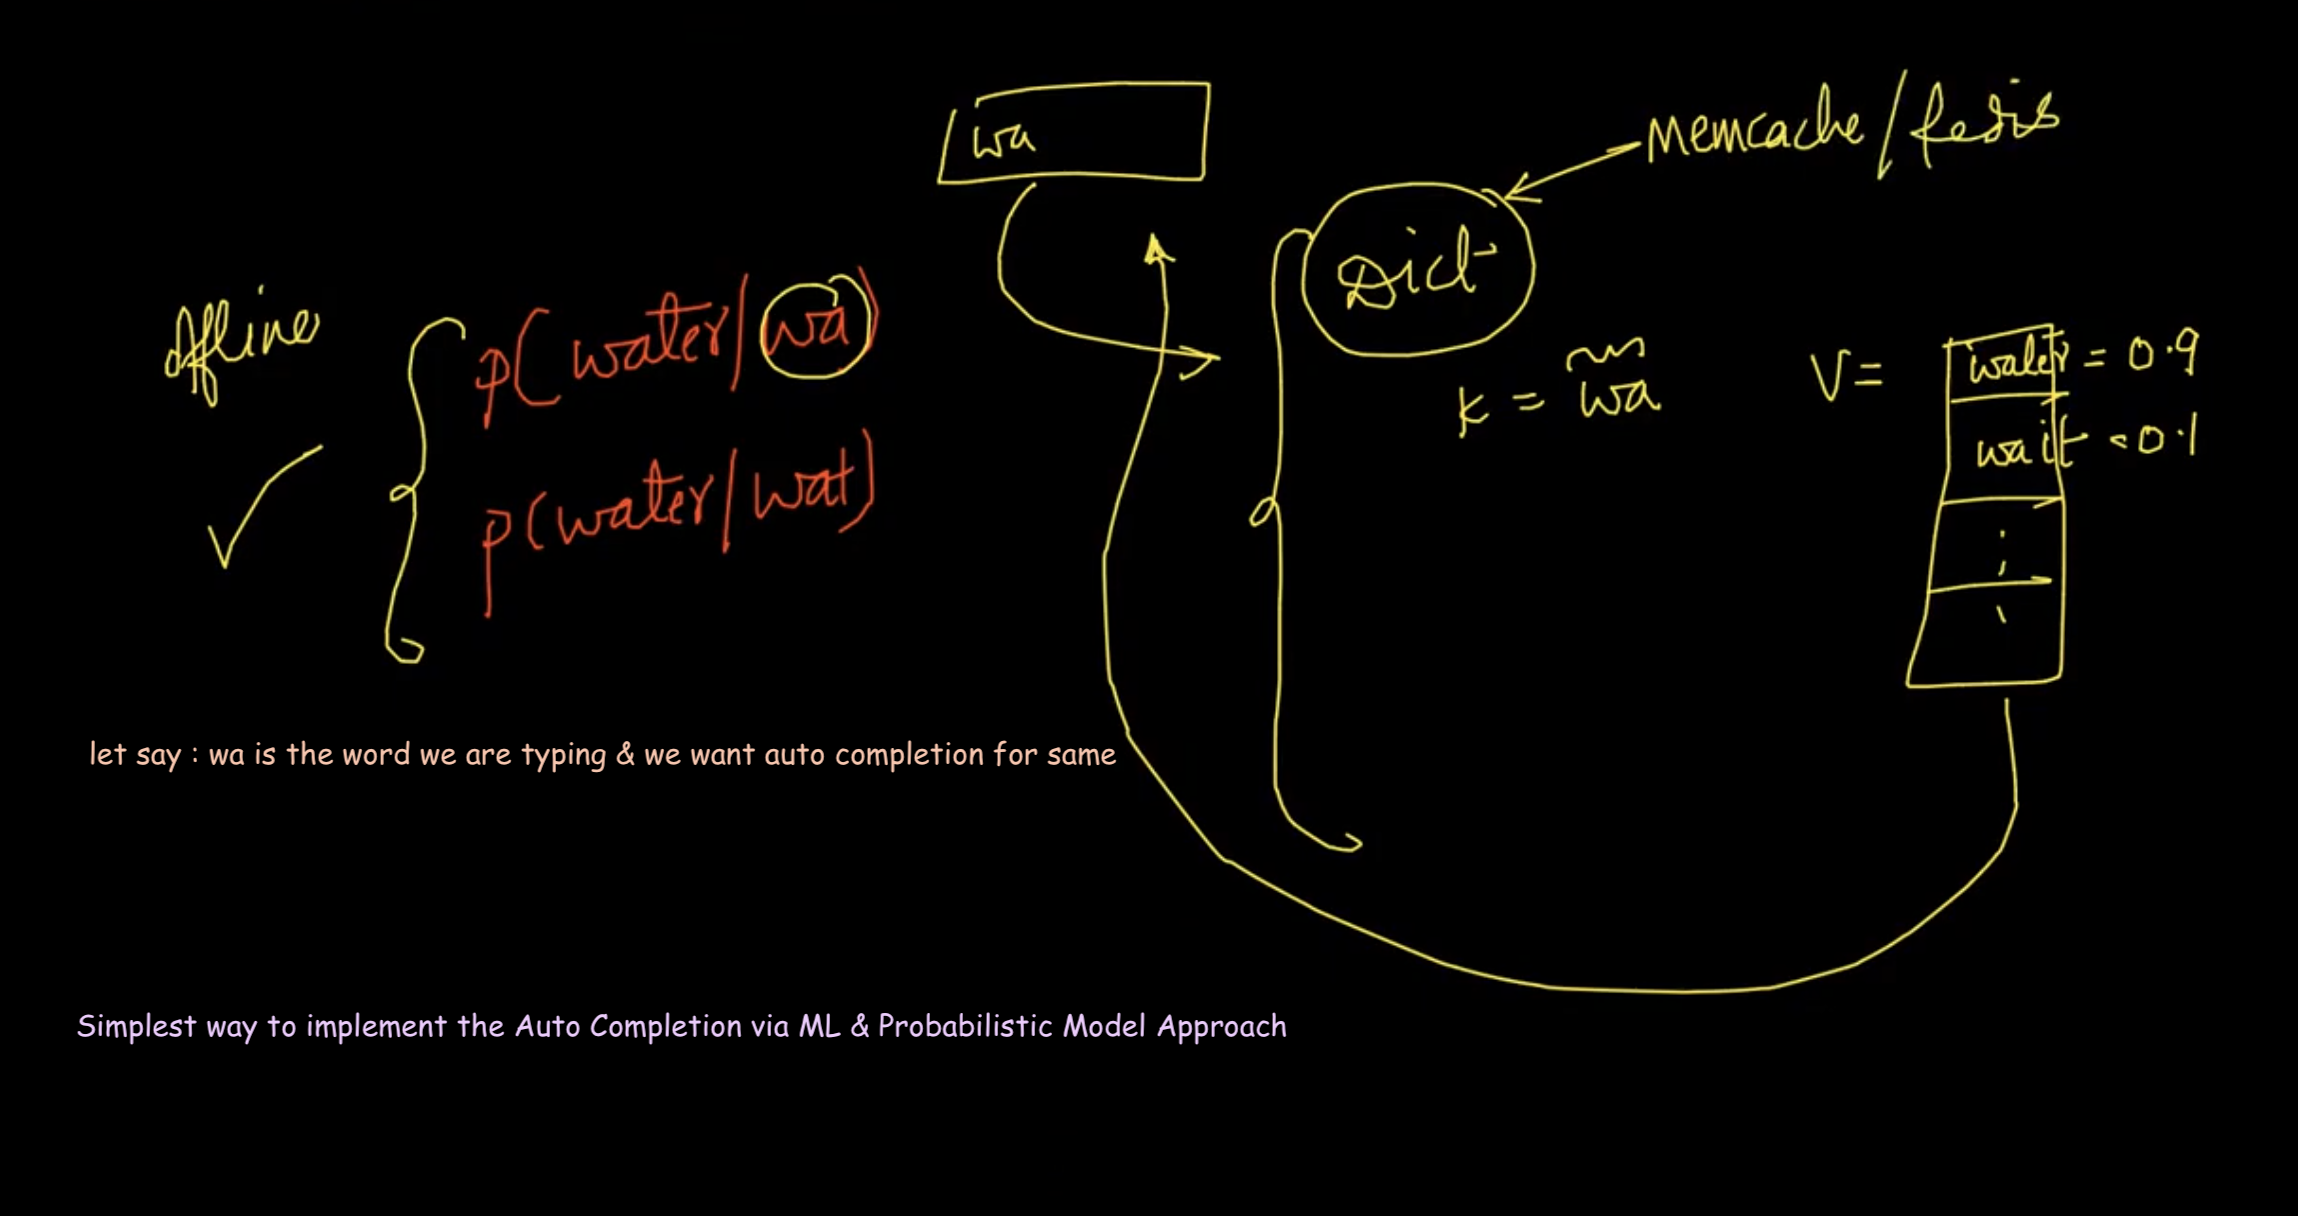 wa
Memcache/Redis
Dict
Offline
p(water/wa)
p(water/wat)
K = wa
V =
water = 0.9
wait = 0.1
let say : wa is the word we are typing & we want auto completion for same
Simplest way to implement the Auto Completion via ML & Probabilistic Model Approach